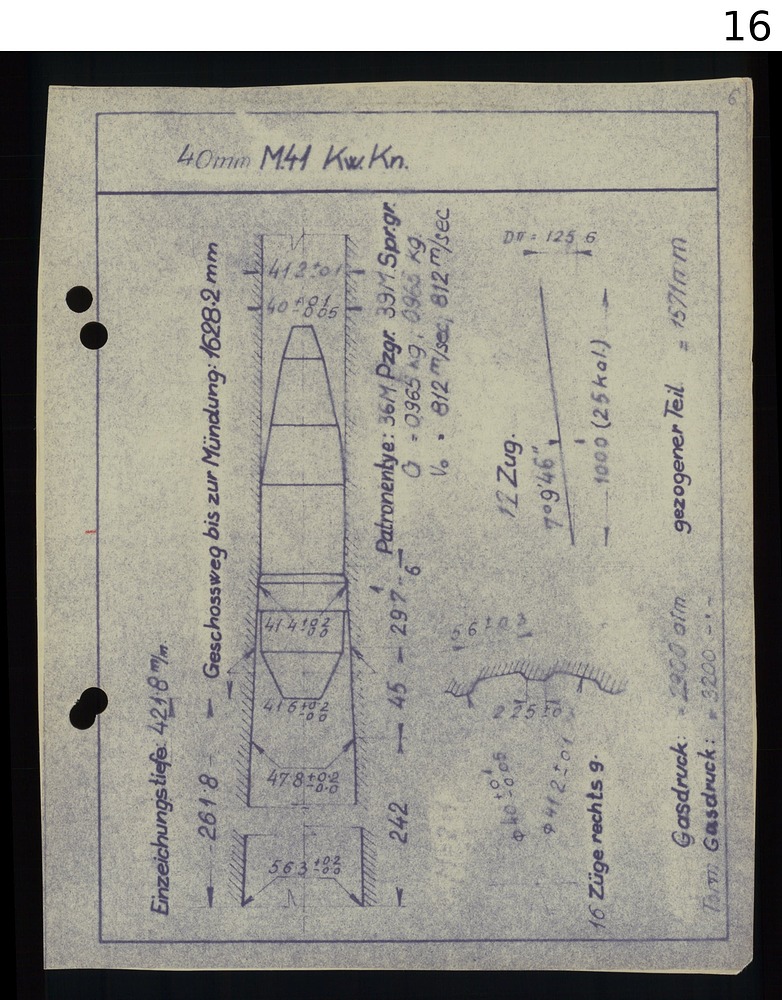 16
6
40mm M.41 Kw.Kn.
Einzeichungstiefe: 421.8 m/m
261.8
Geschossweg bis zur Mündung: 1628.2 mm
41.2±0.1
40 +0.1 -0.05
41.4 +0.2 -0.0
41.6 +0.2 -0.0
47.8 +0.2 -0.0
56.3 +0.2 -0.0
242
45
297
6
Patronentye: 36M.Pzgr. 39M.Spr.gr.
G = 0,965 kg, 0,965 kg.
Vo = 812 m/sec, 812 m/sec
Dπ = 125.6
12 Zug.
7°9'46"
1000 (25 kal.)
5.6
2.25
φ 40 +0.1 -0.05
φ 41.2 ±0.1
16 Züge rechts g.
gezogener Teil = 1571 m m
Gasdruck: 2900 atm
Gasdruck: 3200